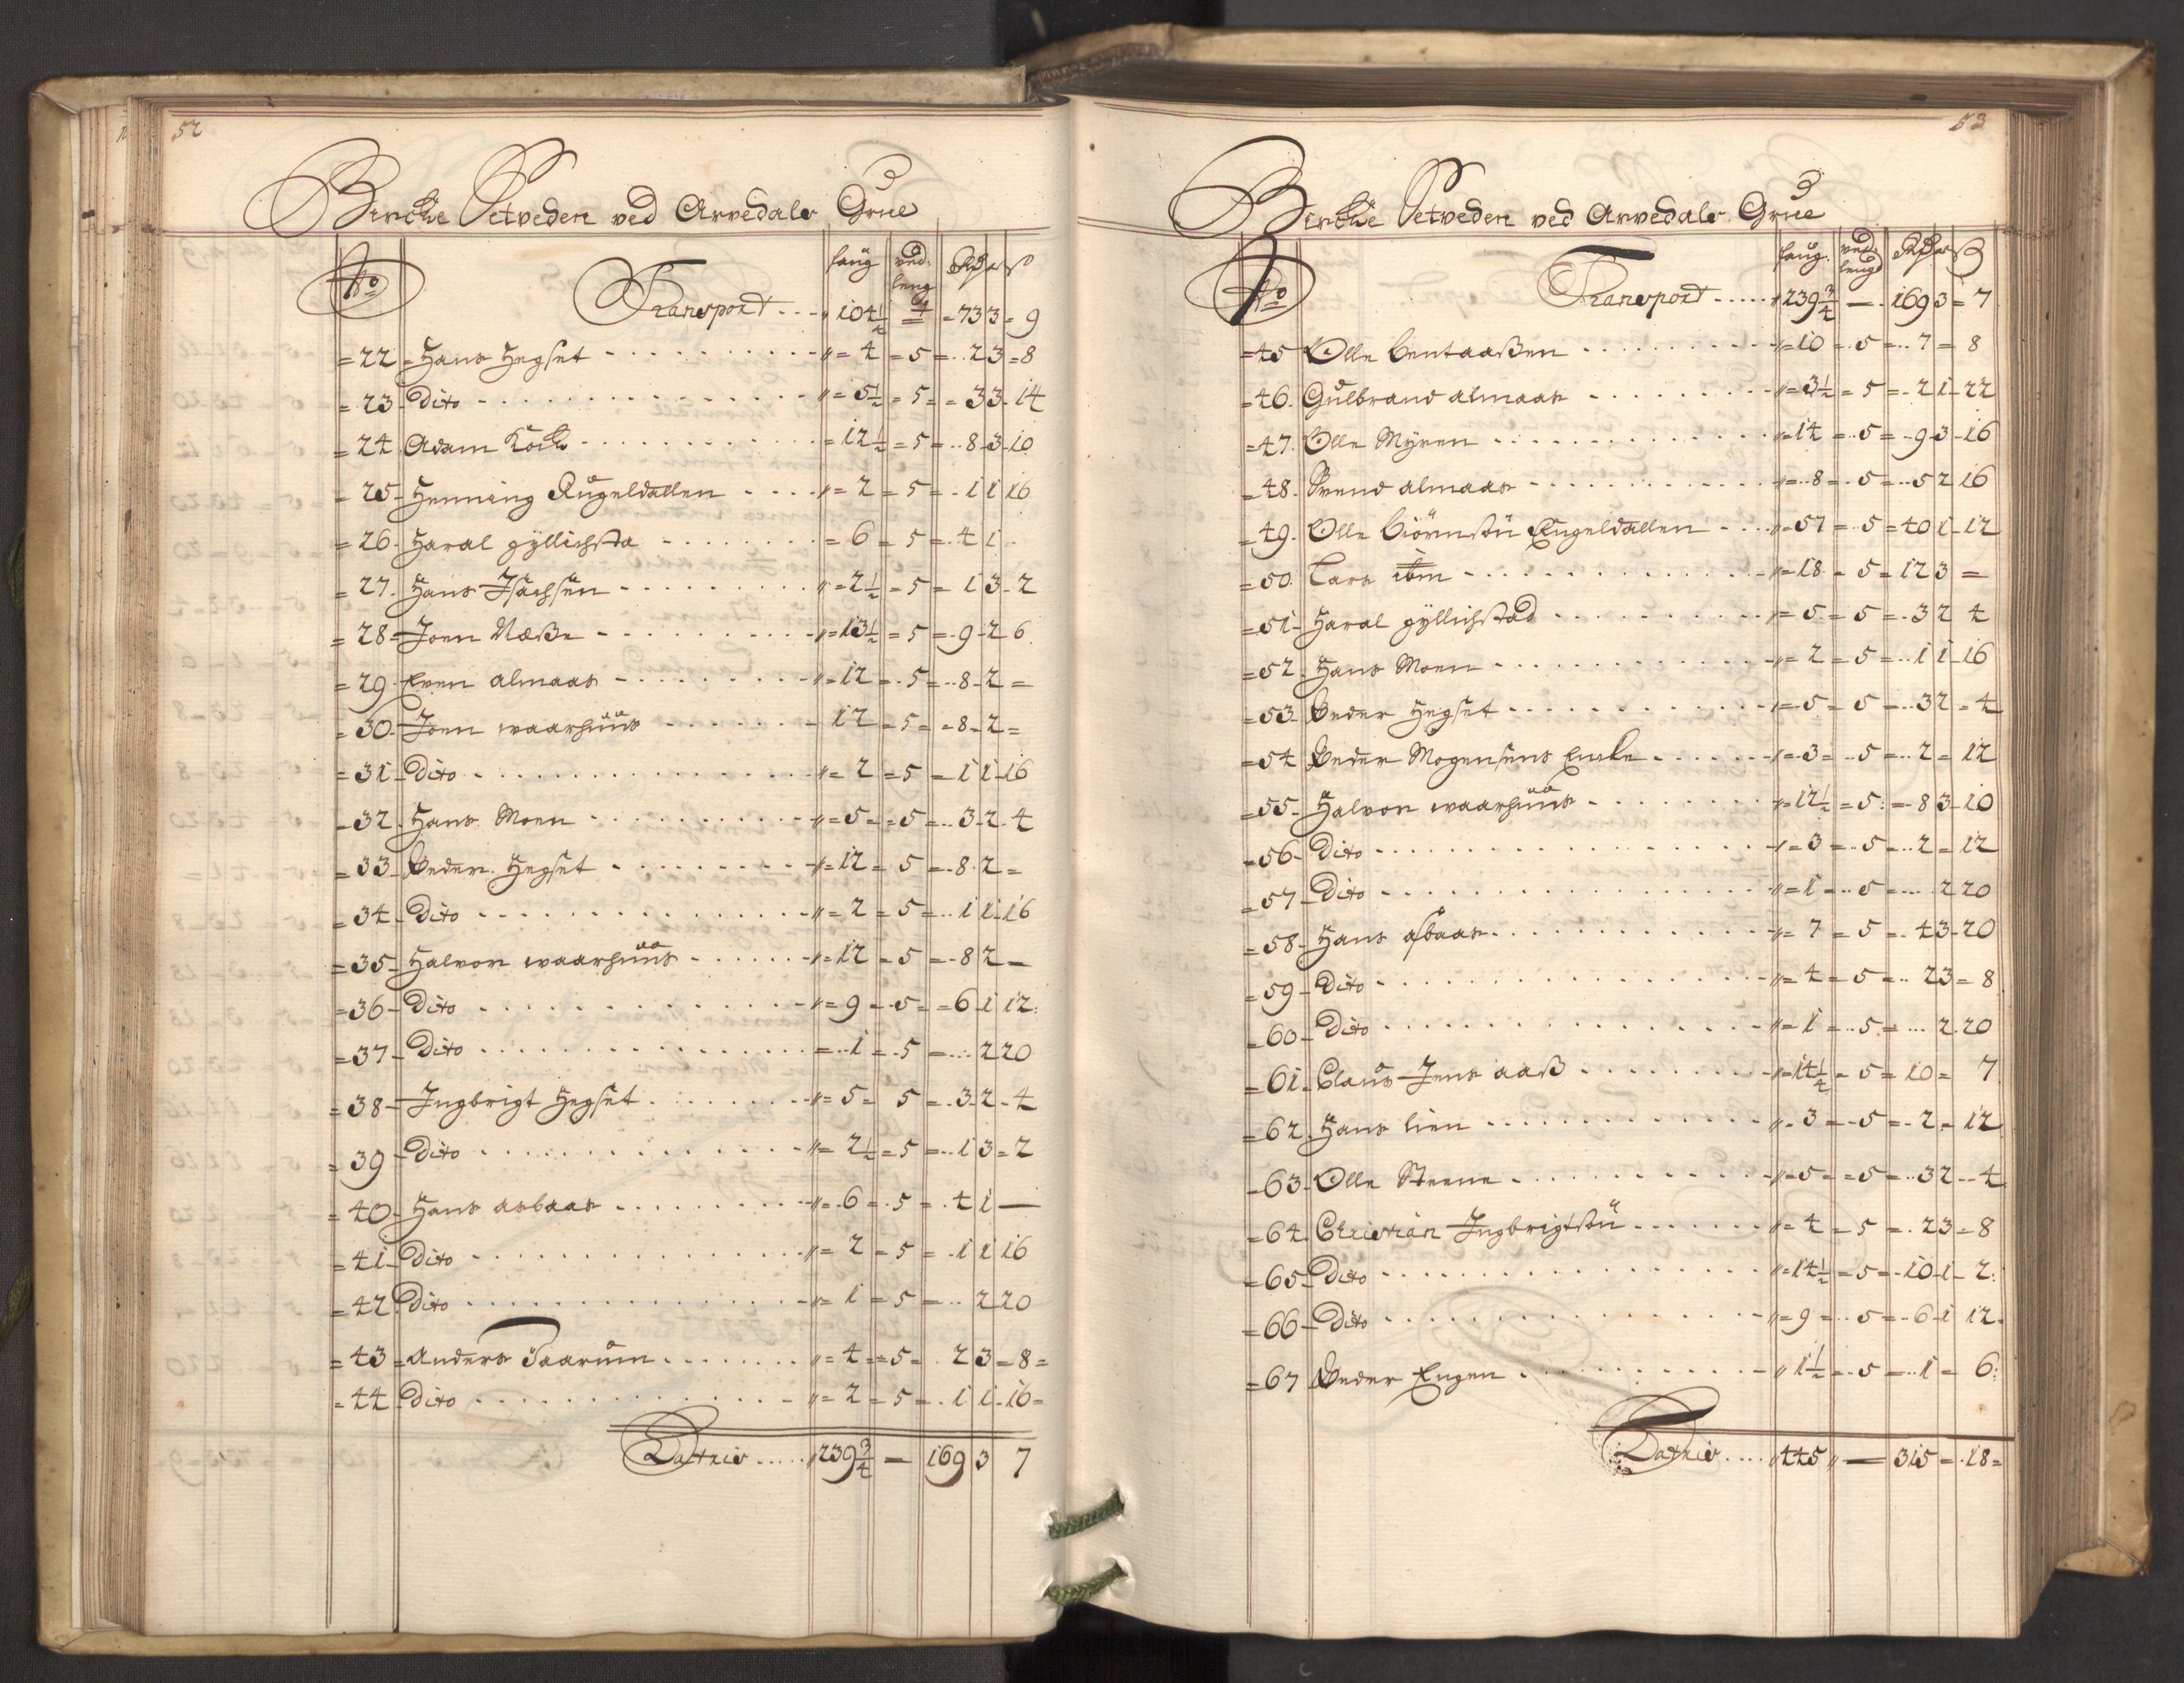 52
Bircke Setveden ved Arvedals Grue
No faug ved: leng Rdr ort s
Transport . . . 104 1/4 4 = 73 3 = 9
= 22 = Hans Hegset . . . 4 = 5 = 2 3 = 8
= 23 - Dito . . . 5 1/2 = 5 = 3 3 - 14
= 24 Adam Kock . . . 12 1/2 = 5 = 8 - 3 - 10
= 25 - Henning Rugeldallen . . . 2 = 5 = 1 1 16
= 26 - Haral gyllichsta . . . 6 = 5 = 4 1 -
= 27 - Hans Isachsen . . . 2 1/2 = 5 = 1 3 - 2
= 28 = Joen Næsse . . . 13 1/2 = 5 = 9 - 2 6
= 29 - Even almaas . . . 12 = 5 = 8 - 2 =
= 30 - Joen waarhuus . . . 12 = 5 = 8 - 2 =
= 31 - Dito . . . 2 = 5 = 1 1 - 16
= 32 - Hans Moen . . . 5 = 5 = 3 - 2 - 4
= 33 - Peder Hegset . . . 12 = 5 = 8 - 2 =
= 34 - Dito . . . 2 = 5 = 1 1 - 16
= 35 - Halvor waarhuus . . . 12 = 5 = 8 2 =
= 36 - Dito . . . 9 = 5 = 6 - 1 12
= 37 - Dito . . . 1 = 5 = 2 20
= 38 - Ingbrigt Hegset . . . 5 = 5 = 3 - 2 - 4
= 39 - Dito . . . 2 1/2 = 5 = 1 3 = 2
= 40 - Hans asbaas . . . 6 = 5 = 4 1 —
= 41 - Dito . . . 2 = 5 = 1 1 16
= 42 Dito . . . 1 = 5 = 2 20
= 43 = Anders Taarum . . . 4 = 5 = 2 3 = 8 =
= 44 Dito . . . 2 = 5 = 1 1 - 16 =
Lateris . . . 239 3/4 — 169 3 7
53
Bircke Setveden ved Arvedals Grue
No faug. ved: lengd Rdr ort s
Transport . . . 239 3/4 — 169 3 = 7
= 45 Olle bentaassen . . . 10 = 5 = 7 = 8
= 46. Gulbrand almaas . . . 3 1/2 = 5 = 2 1 - 22
= 47. Olle Myren . . . 14 = 5 = 9 3 - 16
= 48. Svend almaas . . . 8 = 5 = 5 2 16
= 49. Olle biörnsøn Rugeldallen . . . 57 = 5 = 40 1 - 12
= 50. Lars ibm . . . 18 = 5 = 12 3 =
= 51 - Haral gyllichstad . . . 5 = 5 = 3 2 4
= 52. Hans Moen . . . 2 = 5 = 1 1 - 16
= 53 - Peder Hegset . . . 5 = 5 = 3 2 = 4
= 54 Peder Mogensens Encke . . . 3 = 5 = 2 = 12
= 55 - Halvor waarhuus . . . 12 1/2 = 5 = 8 3 - 10
= 56 - Dito . . . 3 = 5 = 2 = 12
= 57 - Dito . . . 1 = 5 = 2 20
= 58 - Hans asbaas . . . 7 = 5 = 4 3 - 20
= 59 - Dito . . . 4 = 5 = 2 3 = 8
= 60 - Dito . . . 1 = 5 = 2 20
= 61. Claus Jens aass . . . 14 1/4 = 5 = 10 = 7
= 62. Hans lien . . . 3 = 5 = 2 = 12
= 63 - Olle Steene . . . 5 = 5 = 3 2 - 4
= 64. Christian Ingbrigtsøn . . . 4 = 5 = 2 3 = 8
= 65 - Dito . . . 14 1/2 = 5 = 10 - 1 - 2
= 66 - Dito . . . 9 = 5 = 6 - 1 12
= 67 Peder Engen . . . 1 1/2 = 5 = 1 = 6
Lateris . . . 445 — 315 = 18 =